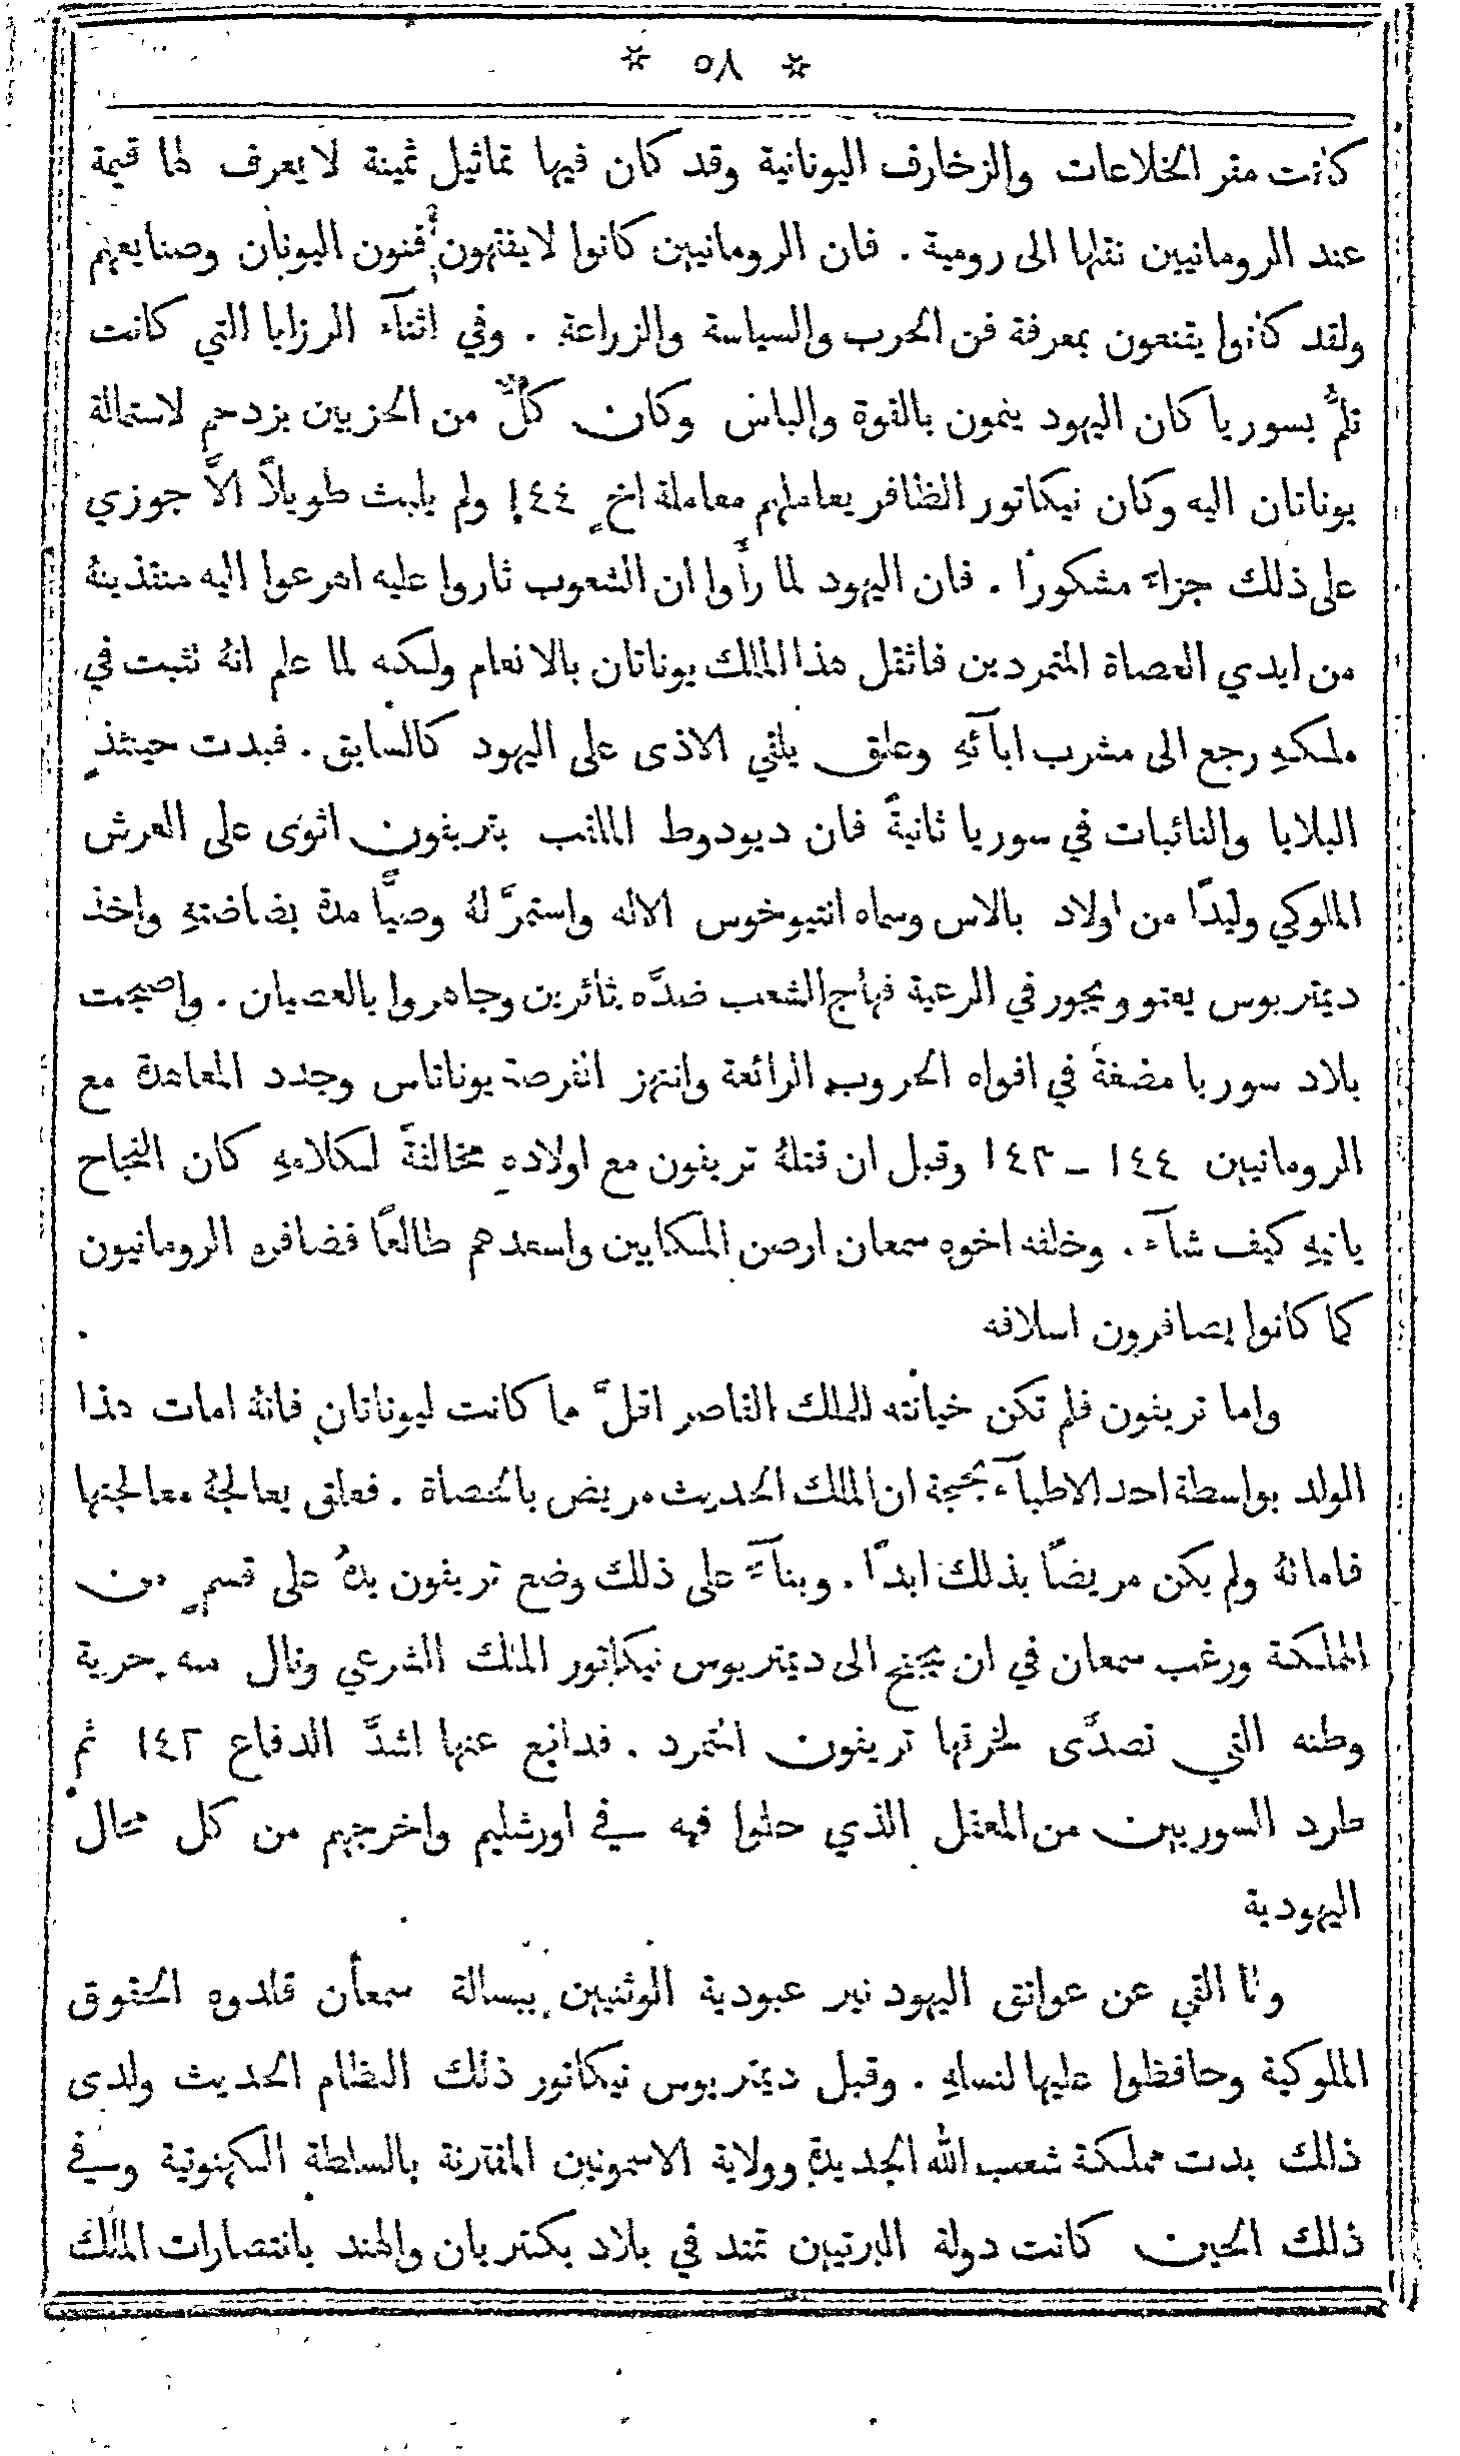 * ٨٥ *
كانت مقر الخلاعات والزخارف اليونانية وقد كان فيها تماثيل ثمينة لا يعرف لها قيمة
عند الرومانيين نقلها الى رومية . فان الرومانيين كانوا لا يفقهون فنون اليونان وصنايعهم
ولقد كانوا يقنعون بمعرفة فن الحرب والسياسة والزراعة . وفي اثنآء الرزايا التي كانت
تلمُّ بسوريا كان اليهود ينمون بالقوة والباس وكان كلٌّ من الحزبين يزدحم لاستمالة
يوناتان اليه وكان نيكاتور الظافر يعاملهم معاملة اخٍ ١٤٤ ولم يلبث طويلاً الاَّ جوزي
على ذلك جزاءً مشكورًا . فان اليهود لما رأوا ان الشعوب ثاروا عليه اهرعوا اليه منقذينهُ
من ايدي العصاة المتمردين فاثقل هذا الملك يوناتان بالانعام ولكنه لما علم انهُ تثبت في
ملكهِ رجع الى مشرب ابآئهِ وعلق يلقي الاذى على اليهود كالسابق . فبدت حينئذٍ
البلايا والنائبات في سوريا ثانيةً فان ديودوط الملقب بتريفون اثوى على العرش
الملوكي وليدًا من اولاد بالاس وسماه انتيوخوس الاله واستمرَّ لهُ وصيًّا مدة بضاضتهِ واخذ
ديمتريوس يعتو ويجور في الرعية فهاج الشعب ضدَّه ثائرين وجاهروا بالعصيان . واصبحت
بلاد سوريا مضغةً في افواه الحروب الرائعة وانتهز الفرصة يوناتاس وجدد المعاهدة مع
الرومانيين ١٤٤ – ١٤٣ وقبل ان قتلهُ تريفون مع اولادهِ مخالفةً لكلامهِ كان النجاح
ياتيهِ كيف شآء . وخلفه اخوه سمعان ارصن المكابيين واسعدهم طالعًا فضافره الرومانيون
كما كانوا يضافرون اسلافه
واما تريفون فلم تكن خيانته للملك القاصر اقلَّ مما كانت ليوناتان فانهُ امات هذا
الولد بواسطة احد الاطبآء بحجة ان الملك الحديث مريض بالحصاة . فعلق يعالجهُ معالجتها
فاماتهُ ولم يكن مريضًا بذلك ابدًا . وبنآءً على ذلك وضع تريفون يدهُ على قسمٍ من
المملكة ورغب سمعان في ان يجنح الى ديمتريوس نيكاتور الملك الشرعي ونال منه حرية
وطنه التي تصدَّى لخرتها تريفون المتمرد . فدافع عنها اشدَّ الدفاع ١٤٢ ثم
طرد السوريين من المعقل الذي حلوا فيه في اورشليم واخرجهم من كل محال
اليهودية
ولما القي عن عواتق اليهود نير عبودية الوثنيين ببسالة سمعان قلدوه الحقوق
الملوكية وحافظوا عليها لنسلهِ . وقبل ديمتريوس نيكاتور ذلك النظام الحديث ولدى
ذلك بدت مملكة شعب الله الجديدة وولاية الاسمونيين المقترنة بالسلطة الكهنوتية وفي
ذلك الحين كانت دولة البرتيين تمتد في بلاد بكتريان والهند بانتصارات الملك